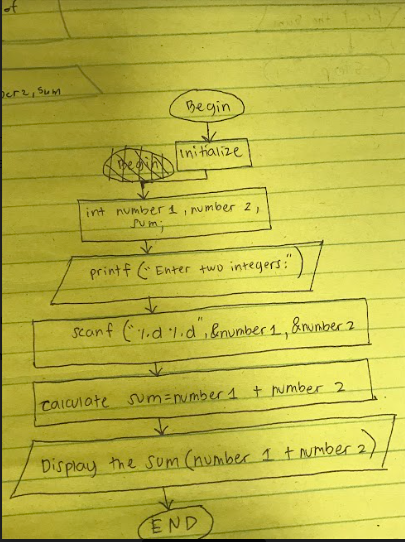 of
ber2, sum
Begin
Initialize
Begin
int number 1, number 2,
sum;
printf ("Enter two integers:")
scanf ("%d %d", &number1, &number 2
calculate sum=number 1 + number 2
Display the sum (number 1 + number 2)
END